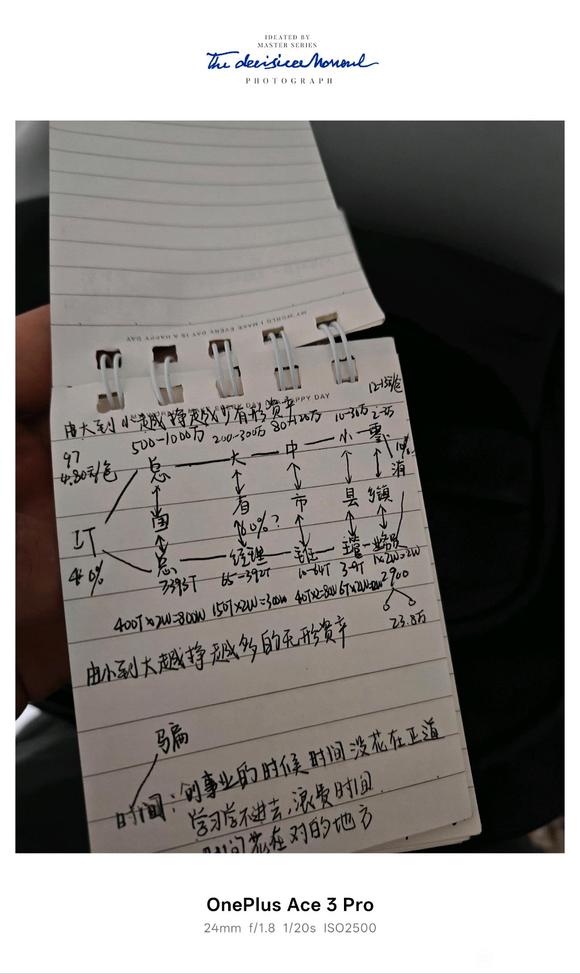 IDEATED BY
MASTER SERIES
The decisive Moment
PHOTOGRAPH
MY WORLD I MAKE EVERY DAY IS A HAPPY DAY
PPY DAY
由大到小越挣越少有形资产
500-1000万 200-300万 80-120万 10-30万 2-3万
97
4.80元/包
总 — 大 — 中 — 小 — 零
10%
国 省 市 县 乡镇
60%?
工厂
40%
总 — 经理
3393T 65-392T 10-64T 3-9T 1x2W=2W
400T×2W=800W 150T×2W=300W
2900
23.8万
由小到大越挣越多的无形资产
骗
时间:创事业的时候 时间没花在正道
学习学不进去,浪费时间
时间花在对的地方
OnePlus Ace 3 Pro
24mm f/1.8 1/20s ISO2500